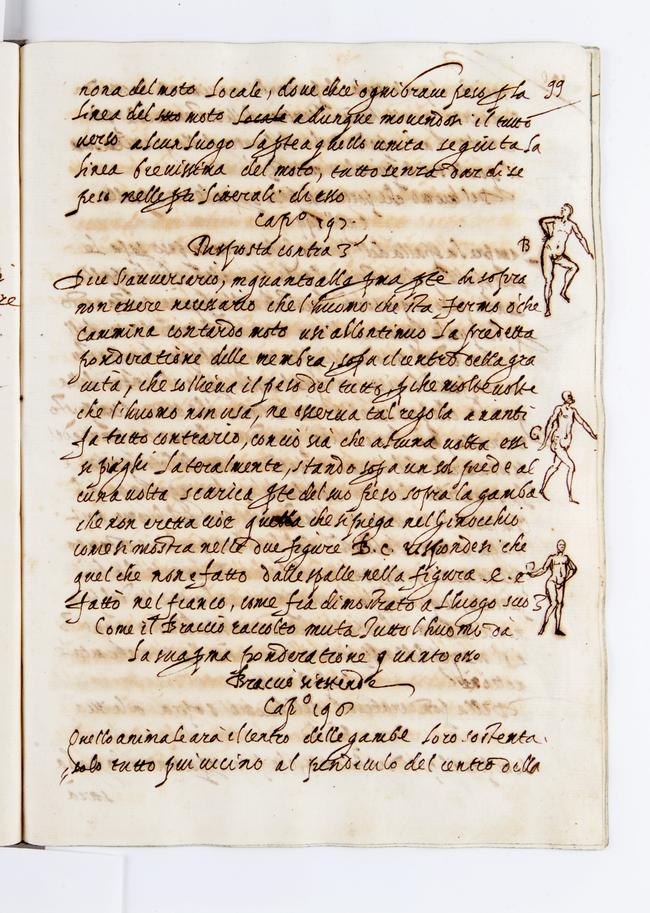 99
nona del moto Locale, doue dice ogni graue pesa p la
Linea del suo moto Locale adunque mouendosi il tutto
verso alcun luogo La pte a quello unita seguita La
linea breuissima del moto, tutto senza dar di se
peso nelle pti Laterali di esso
Capo. 197.
Risposta contra
B
Dice l'auuersario, in quanto alla pma pte di sopra
non essere necessario che l'huomo che sta fermo o che
cammina con tardo moto usi al continuo La predetta
ponderatione delle membra, sopa il centro della gra
uità, che sollieua il peso del tutto, p che molte uolte
che l'huomo non usa, ne osserua tal regola ananti
fa tutto contrario, conciò sià che alcuna uolta esso
si pieghi Lateralmente, stando sopa un sol piede al
cuna uolta scarica pte del suo peso sopra la gamba
C
che non è retta cioè quella che si piega nel ginocchio
come si mostra nelle due figure B. C. rispondesi che
quel che non è fatto dalle spalle nella figura C. è
fatto nel fianco, come fia dimostrato a Luogo suo
Come il Braccio raccolto muta Tutto l'huomo da
La sua pma ponderatione quanto esso
Braccio si estende
Capo 198
Quello animale ara il centro delle gambe Loro sostenta.
colo tutto piu uicino al pendiculo del centro della